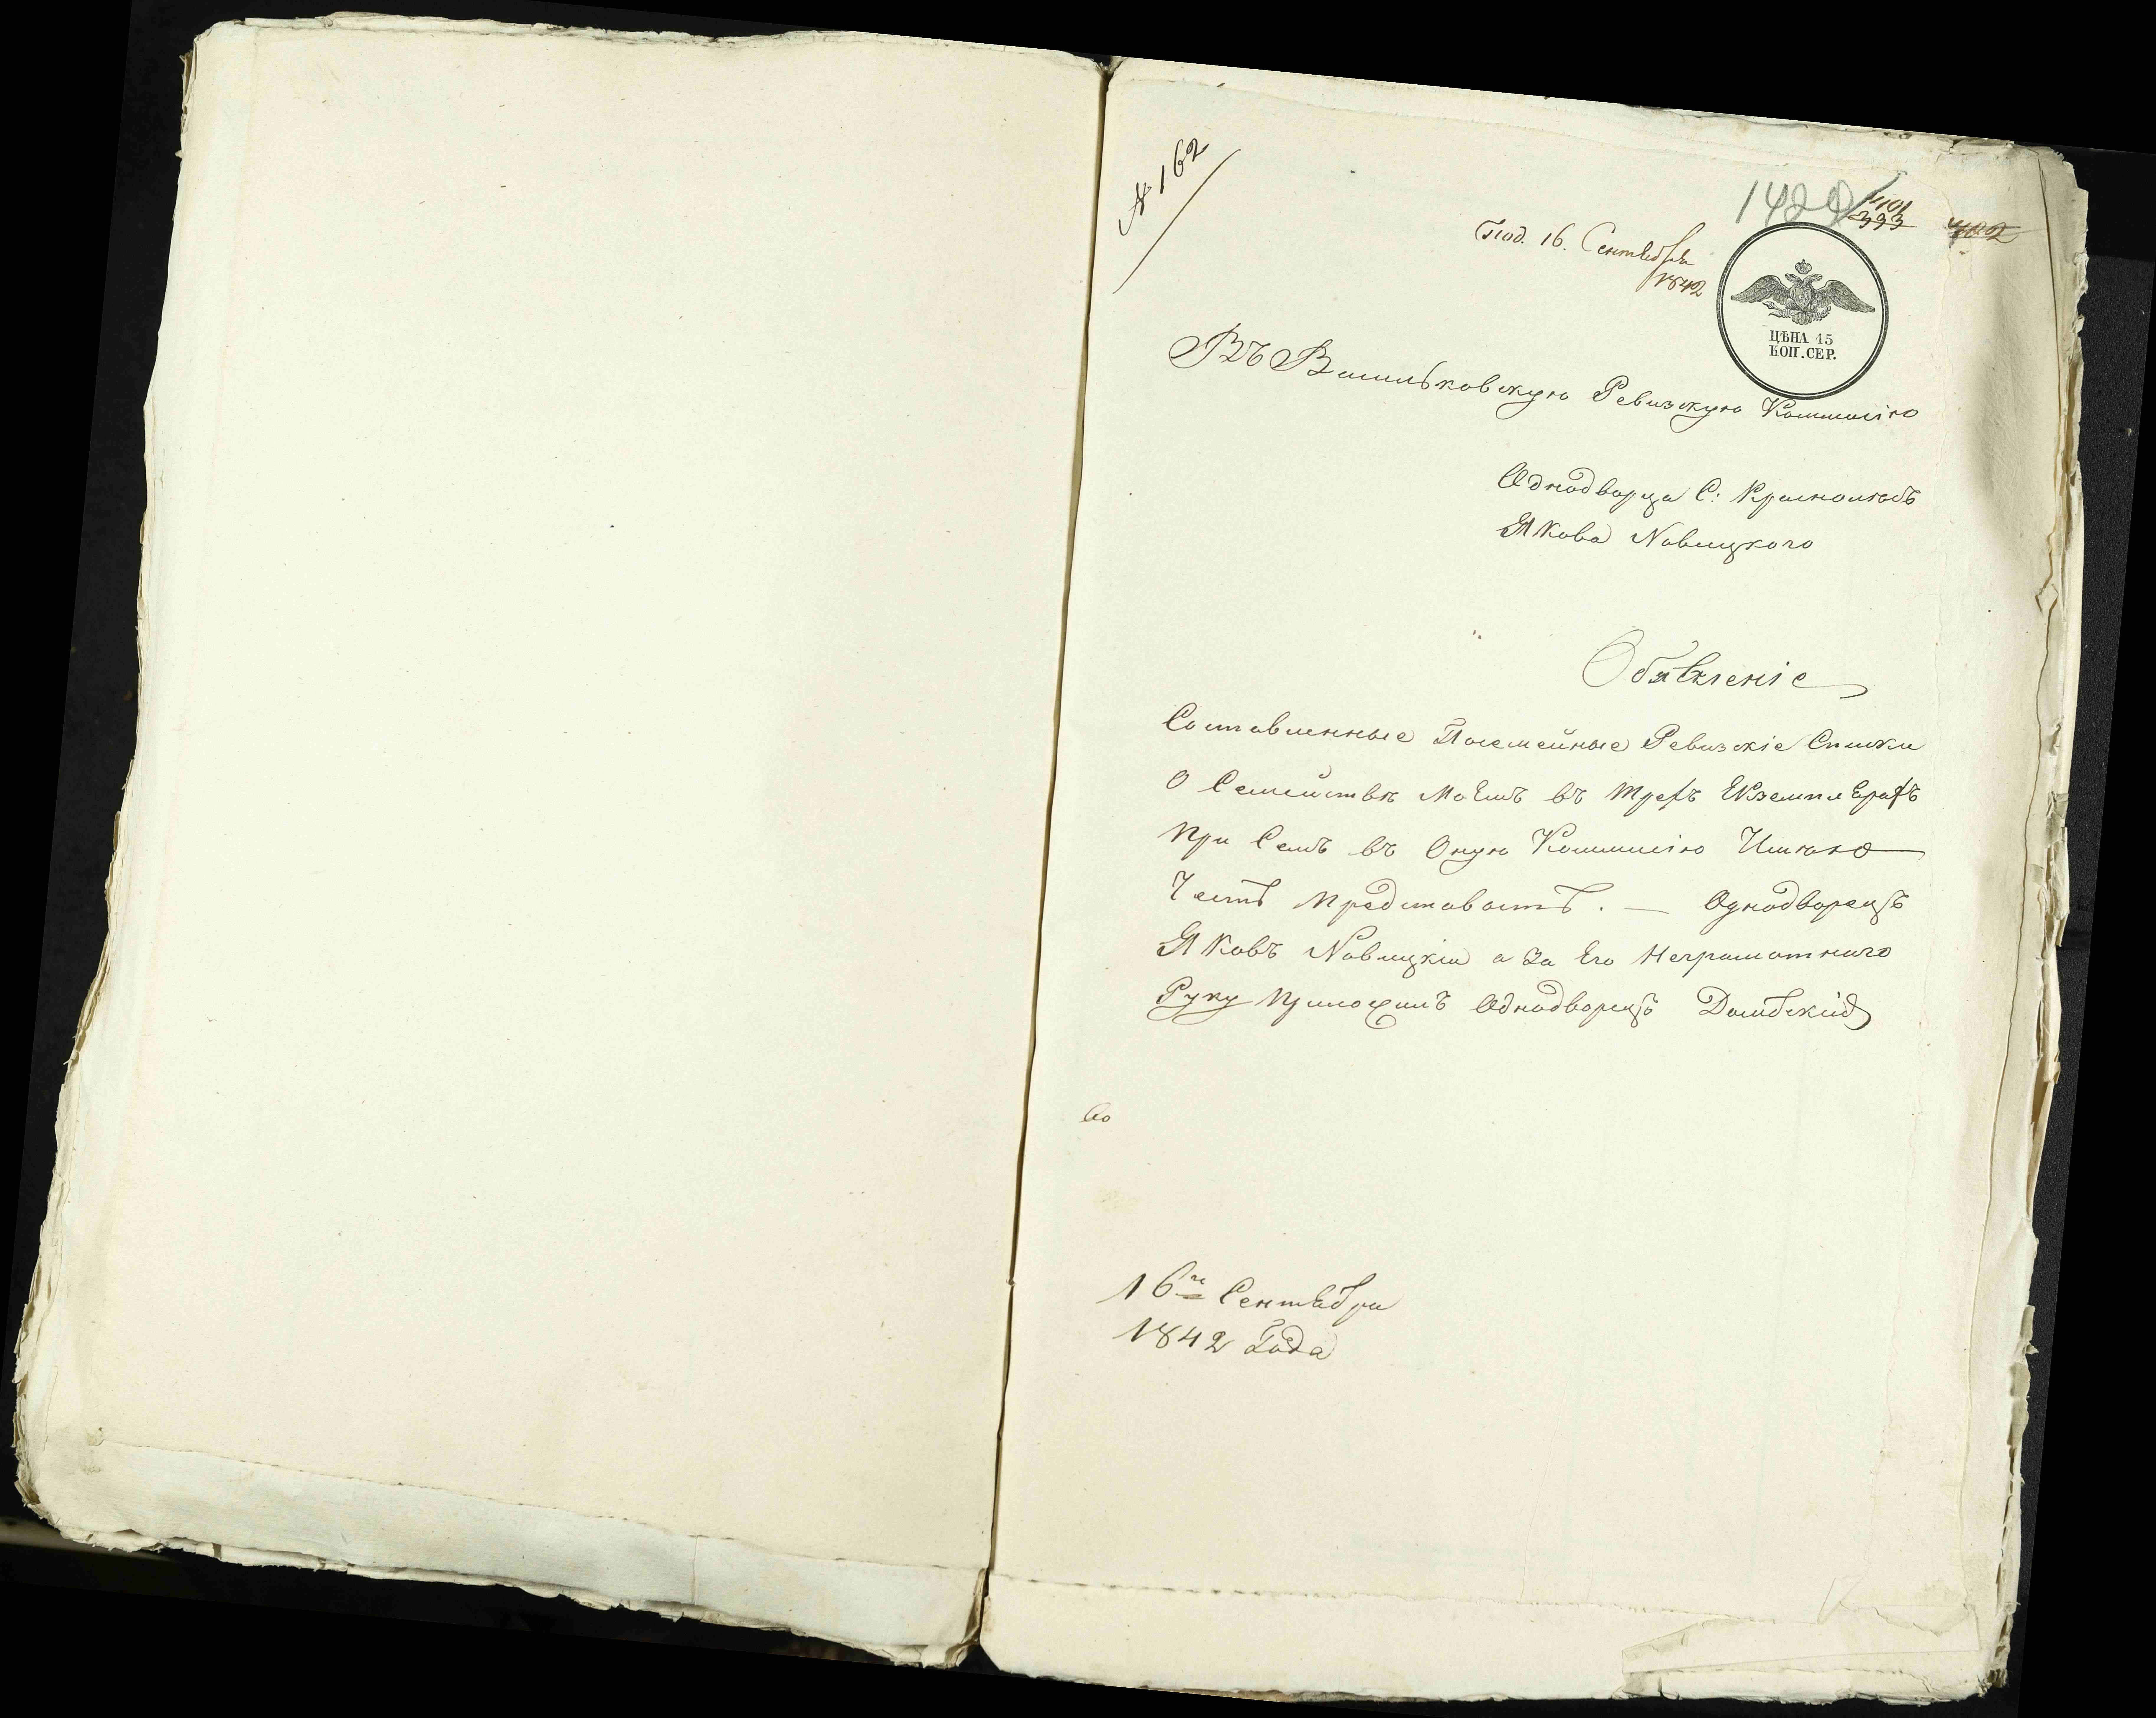 № 162
1422 401
393 402
Под. 16. Сентября
1842
ЦѢНА 15
КОП. СЕР.
Въ Васильковскую Ревизскую Коммисію
Однодворца С:
Якова Новицкого
Обявленіе
Составленные Посемейные Ревизскіе Списки
О Семействѣ Моемъ въ трехъ Екземплерахъ
При Семъ въ Оную Коммисію Имѣю
Честь представить. — Однодворецъ
Яковъ Новицкій а За Его Неграмотного
Руку Приложилъ Однодворецъ Домбскій
16го Сентебра
1842 Года